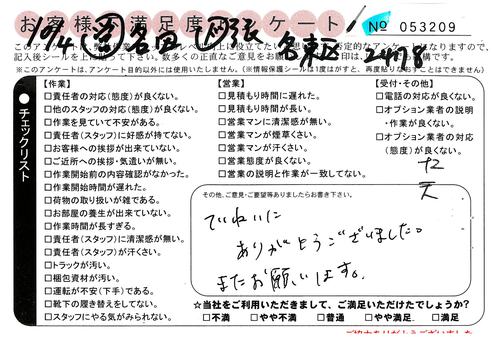 お客様満足度アンケート
No 053209
このアンケートは、
記入後シールを上に貼って下さい。多数のご正直なご意見をお願い
※このアンケートは、アンケート目的以外には使用いたしません。(※情報保護シールは1度はがすと、再度貼りなおすことはできません)
チェックリスト
【作業】
□責任者の対応(態度)が良くない。
□他のスタッフの対応(態度)が良くない。
□作業を見ていて不安がある。
□責任者(スタッフ)に好感が持てない。
□お客様への挨拶が出来ていない。
□ご近所への挨拶・気遣いが無い。
□作業開始前の内容確認がなかった。
□作業開始時間が遅れた。
□荷物の取り扱いが雑である。
□お部屋の養生が出来ていない。
□作業時間が長すぎる。
□責任者(スタッフ)に清潔感が無い。
□責任者(スタッフ)が汗くさい。
□トラックが汚い。
□梱包資材が汚い。
□運転が不安(下手)である。
□靴下の履き替えをしてない。
□スタッフにやる気がみられない。
【営業】
□見積もり時間に遅れた。
□見積もり時間が長い。
□営業マンに清潔感が無い。
□営業マンが煙草くさい。
□営業マンが汗くさい。
□営業態度が良くない。
□営業の説明と作業が一致してない。
【受付・その他】
□電話の対応が良くない。
□オプション業者の説明
・作業が良くない。
□オプション業者の対応
(態度)が良くない。
その他、ご意見・ご要望等ありましたらお書き下さい。
ていねいに
ありがとうございました。
またお願いします。
☆当社をご利用いただきまして、ご満足いただけたでしょうか?
□不満 □やや不満 □普通 □やや満足 □満足
ご協力ありがとうございました